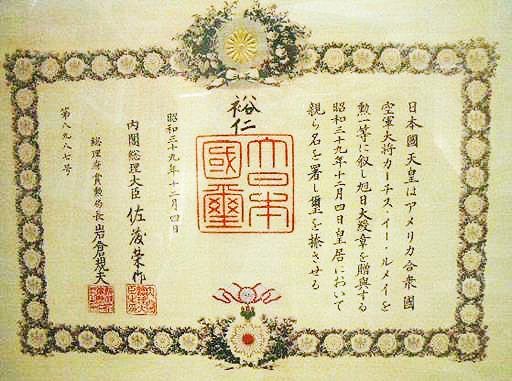 日本國天皇はアメリカ合衆國
空軍大将カーチス・イー・ルメイを
勲一等に叙し旭日大綬章を贈与する
昭和三十九年十二月四日皇居において
親ら名を署し璽を捺させる
裕仁
大日本
國璽
昭和三十九年十二月四日
内閣総理大臣 佐藤栄作
総理府賞勲局長 岩倉規夫
第八九八七号